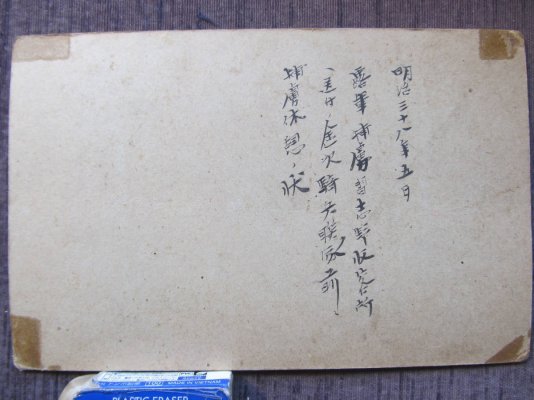 明治三十八年五日
露軍捕虜習志野収容所
送付ノ途次騎兵聯隊前ノ
捕虜休憩ノ状
(100) MADE IN VIETNAM
PLASTIC ERASER